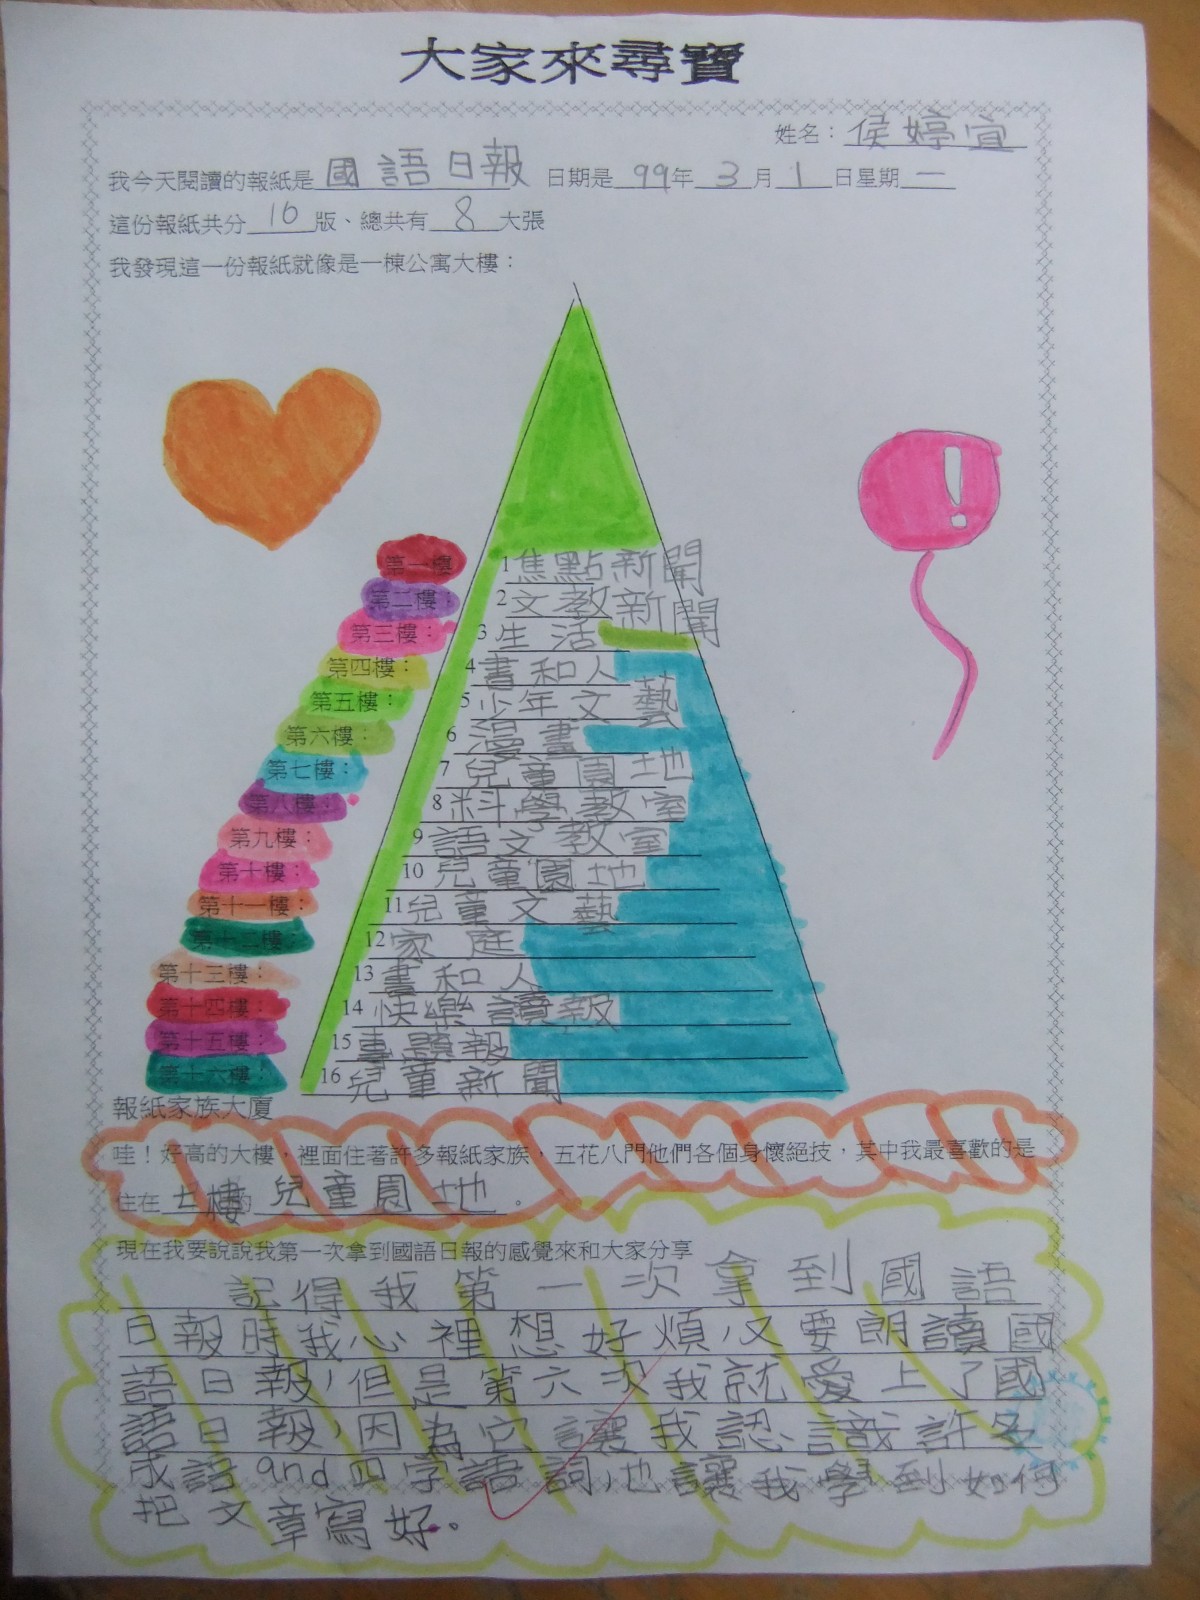 大家來尋寶
姓名：侯婷宜
我今天閱讀的報紙是國語日報 日期是 99年 3 月 1 日星期一
這份報紙共分 16 版、總共有 8 大張
我發現這一份報紙就像是一棟公寓大樓：
第一樓 1 焦點新聞
第二樓： 2 文教新聞
第三樓： 3 生活
第四樓： 4 書和人
第五樓： 5 少年文藝
第六樓： 6 漫畫
第七樓： 7 兒童園地
第八樓： 8 科學教室
第九樓： 9 語文教室
第十樓： 10 兒童園地
第十一樓： 11 兒童文藝
第十二樓： 12 家庭
第十三樓： 13 書和人
第十四樓： 14 快樂讀報
第十五樓： 15 專題報
第十六樓： 16 兒童新聞
報紙家族大廈
哇！好高的大樓，裡面住著許多報紙家族，五花八門他們各個身懷絕技，其中我最喜歡的是
住在七樓的 兒童園地 。
現在我要說說我第一次拿到國語日報的感覺來和大家分享
記得我第一次拿到國語
日報時我心裡想好煩又要朗讀國
語日報，但是第六次我就愛上了國
語日報，因為它讓我認識許多
成語and四字語詞，也讓我學到如何
把文章寫好。